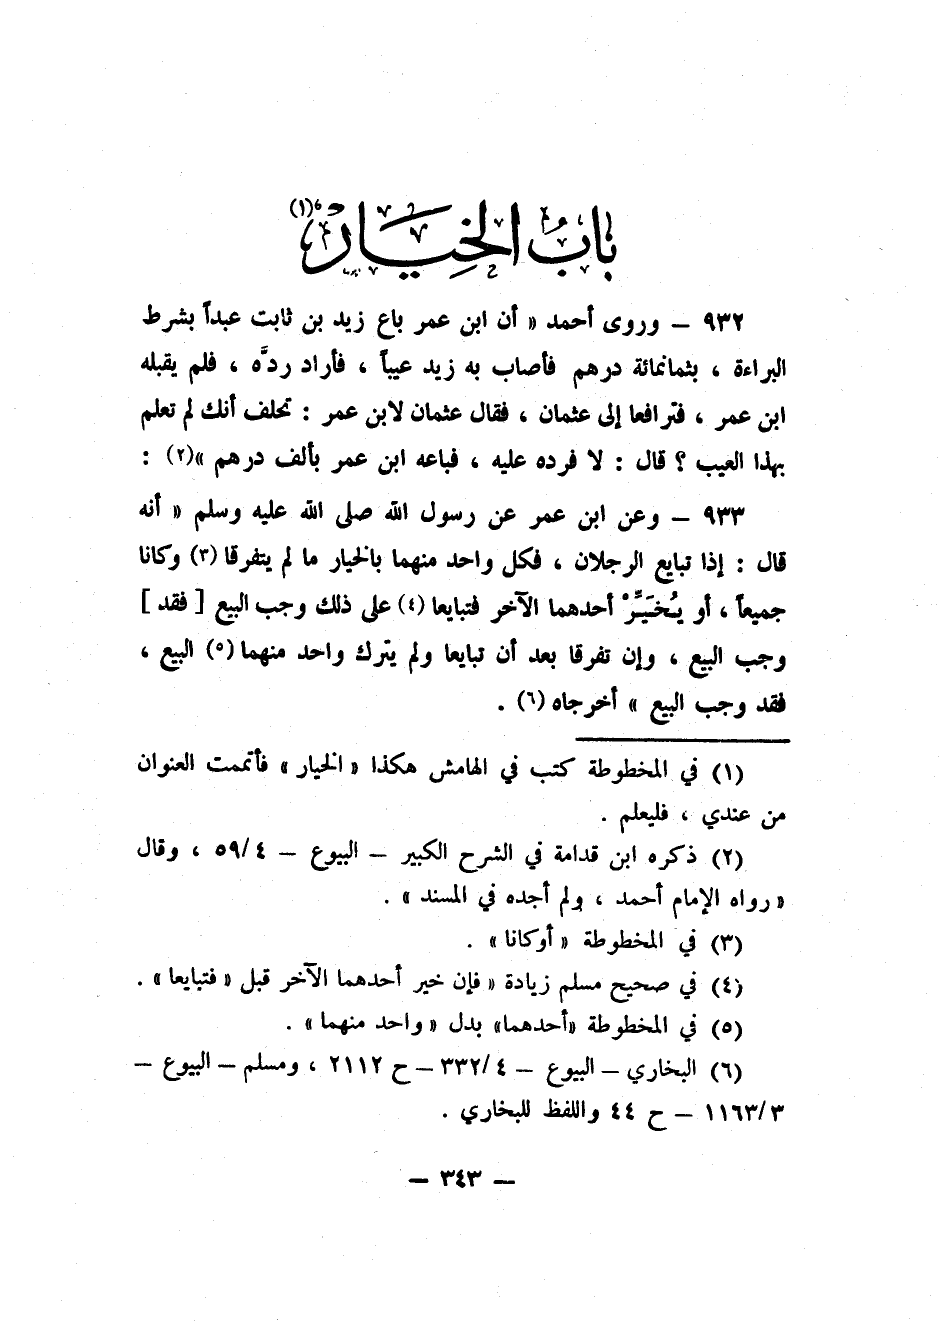 بابُ الخيار(١)
٩٣٢ – وروى أحمد « أن ابن عمر باع زيد بن ثابت عبداً بشرط
البراءة ، بثمانمائة درهم فأصاب به زيد عيباً ، فأراد ردَّه ، فلم يقبله
ابن عمر ، فترافعا إلى عثمان ، فقال عثمان لابن عمر : تحلف أنك لم تعلم
بهذا العيب ؟ قال : لا فرده عليه ، فباعه ابن عمر بألف درهم »(٢) :
٩٣٣ – وعن ابن عمر عن رسول الله صلى الله عليه وسلم « أنه
قال : إذا تبايع الرجلان ، فكل واحد منهما بالخيار ما لم يتفرقا (٣) وكانا
جميعاً ، أو يُخَيِّرْ أحدهما الآخر فتبايعا (٤) على ذلك وجب البيع [ فقد ]
وجب البيع ، وإن تفرقا بعد أن تبايعا ولم يترك واحد منهما (٥) البيع ،
فقد وجب البيع » أخرجاه (٦) .
(١) في المخطوطة كتب في الهامش هكذا « الخيار » فأتممت العنوان
من عندي ، فليعلم .
(٢) ذكره ابن قدامة في الشرح الكبير – البيوع – ٥٩/٤ ، وقال
« رواه الإمام أحمد ، ولم أجده في المسند » .
(٣) في المخطوطة « أوكانا » .
(٤) في صحيح مسلم زيادة « فإن خير أحدهما الآخر قبل « فتبايعا » .
(٥) في المخطوطة «أحدهما» بدل « واحد منهما » .
(٦) البخاري – البيوع – ٣٣٢/٤ – ح ٢١١٢ ، ومسلم – البيوع –
١١٦٣/٣ – ح ٤٤ واللفظ للبخاري .
– ٣٤٣ –